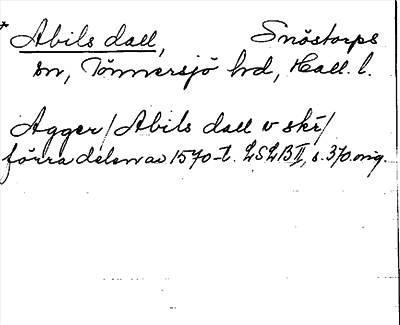 * Abils dall, Snöstorps
sn, Tönnersjö hd, Hall. l.
Agger/Abils dall v skr/
förra delen av 1570-t. LSLB II, s. 370. orig.